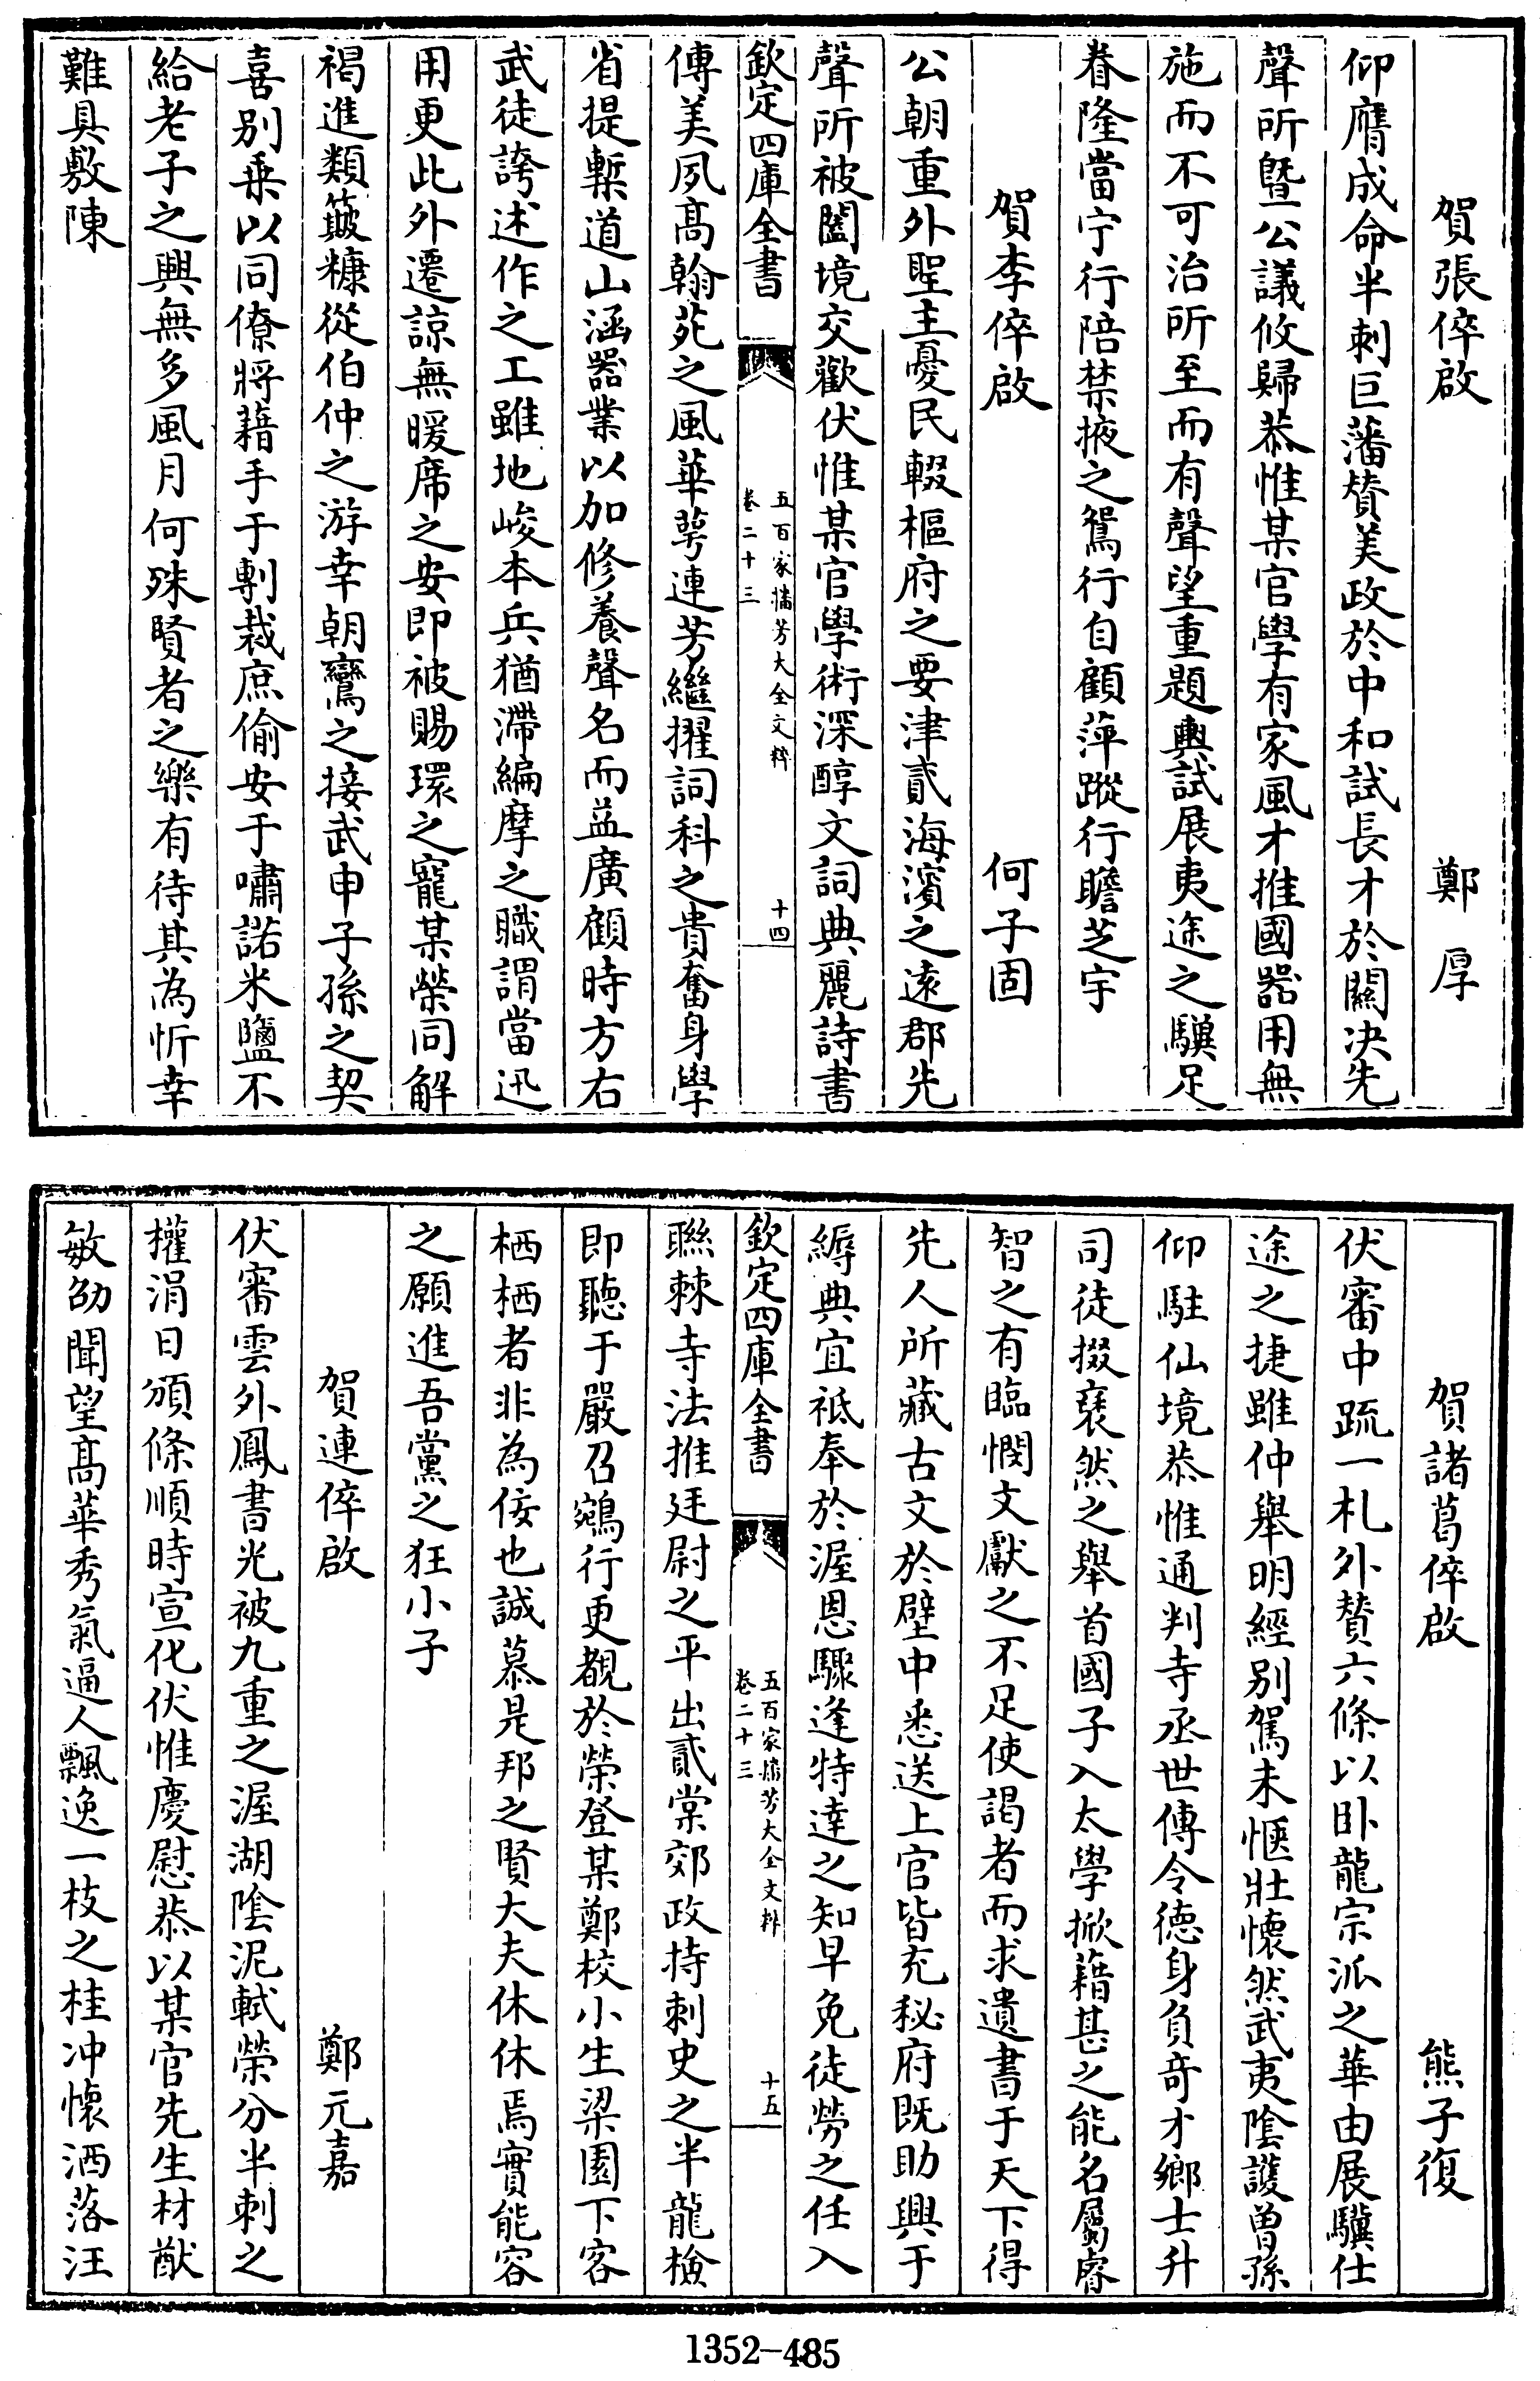 賀張倅啟 鄭厚
仰膺成命半刺巨藩贊美政於中和試長才於關決先
聲所曁公議攸歸恭惟某官學有家風才推國器用無
施而不可治所至而有聲望重題輿試展夷途之驥足
眷隆當宁行陪禁掖之鴛行自顧萍蹤行瞻芝宇
賀李倅啟 何子固
公朝重外聖主憂民輟樞府之要津貳海濱之逺郡先
聲所被闔境交歡伏惟某官學術深醇文詞典麗詩書
欽定四庫全書
五百家播芳大全文粹
卷二十三
十四
傳美夙髙翰苑之風華萼連芳繼擢詞科之貴奮身學
省提槧道山涵器業以加修養聲名而益廣顧時方右
武徒誇述作之工雖地峻本兵猶滯編摩之職謂當迅
用更此外遷諒無暖席之安即被賜環之寵某榮同解
褐進類簸糠從伯仲之游幸朝鸞之接武申子孫之契
喜别乗以同僚將藉手于剸裁庶偷安于嘯諾米鹽不
給老子之興無多風月何殊賢者之樂有待其為忻幸
難具敷陳
賀諸葛倅啟 熊子復
伏審中䟽一札外贊六條以卧龍宗派之華由展驥仕
途之捷雖仲舉明經别駕未愜壯懷然武夷隂護曽孫
仰駐仙境恭惟通判寺丞世傳令德身負奇才鄉士升
司徒掇褎然之舉首國子入太學掀藉甚之能名屬睿
智之有臨憫文獻之不足使謁者而求遺書于天下得
先人所藏古文於壁中悉送上官皆充秘府既助興于
縟典宜祗奉於渥恩驟逢特達之知早免徒勞之任入
欽定四庫全書
五百家播芳大全文粹
卷二十三
十五
聯棘寺法推廷尉之平出貳棠郊政持刺史之半龍檢
即聽于嚴召鵷行更覩於榮登某鄭校小生梁園下客
栖栖者非為佞也誠慕是邦之賢大夫休休焉實能容
之願進吾黨之狂小子
賀連倅啟 鄭元嘉
伏審雲外鳳書光被九重之渥湖隂泥軾榮分半刺之
權涓日頒條順時宣化伏惟慶慰恭以某官先生材猷
敏劭聞望髙華秀氣逼人飄逸一枝之桂冲懷洒落汪
1352-485